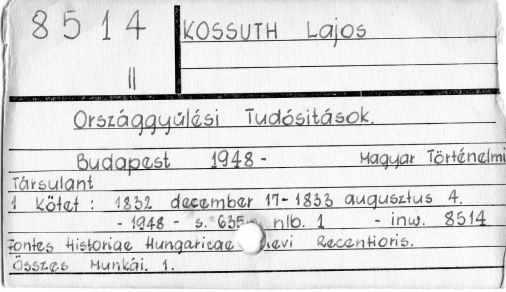 8514 KOSSUTH Lajos
II
Országgyűlési Tudósitások.
Budapest 1948- Magyar Történelmi
Társulant
1 Kötet : 1832 december 17-1833 augusztus 4.
- 1948 - s. 635 nlb. 1 - inw. 8514
Fontes Historiae Hungaricae Recentioris.
Összes Munkái. 1.